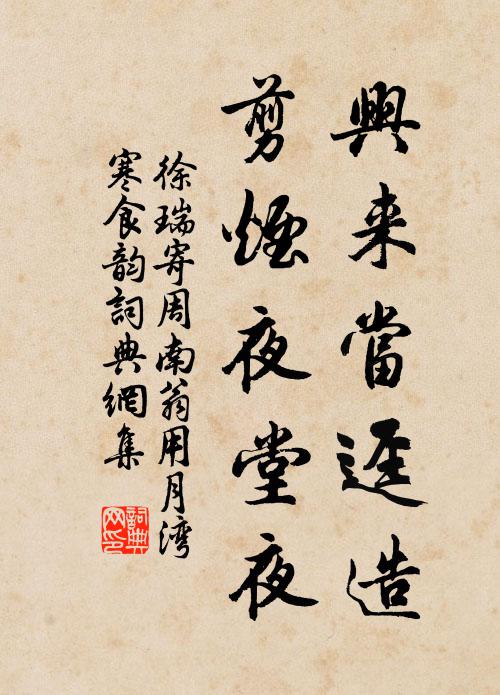 興来當逕造
剪煙夜堂夜
徐瑞寄周南翁用月湾
寒食韵詞典網集
詞典网印